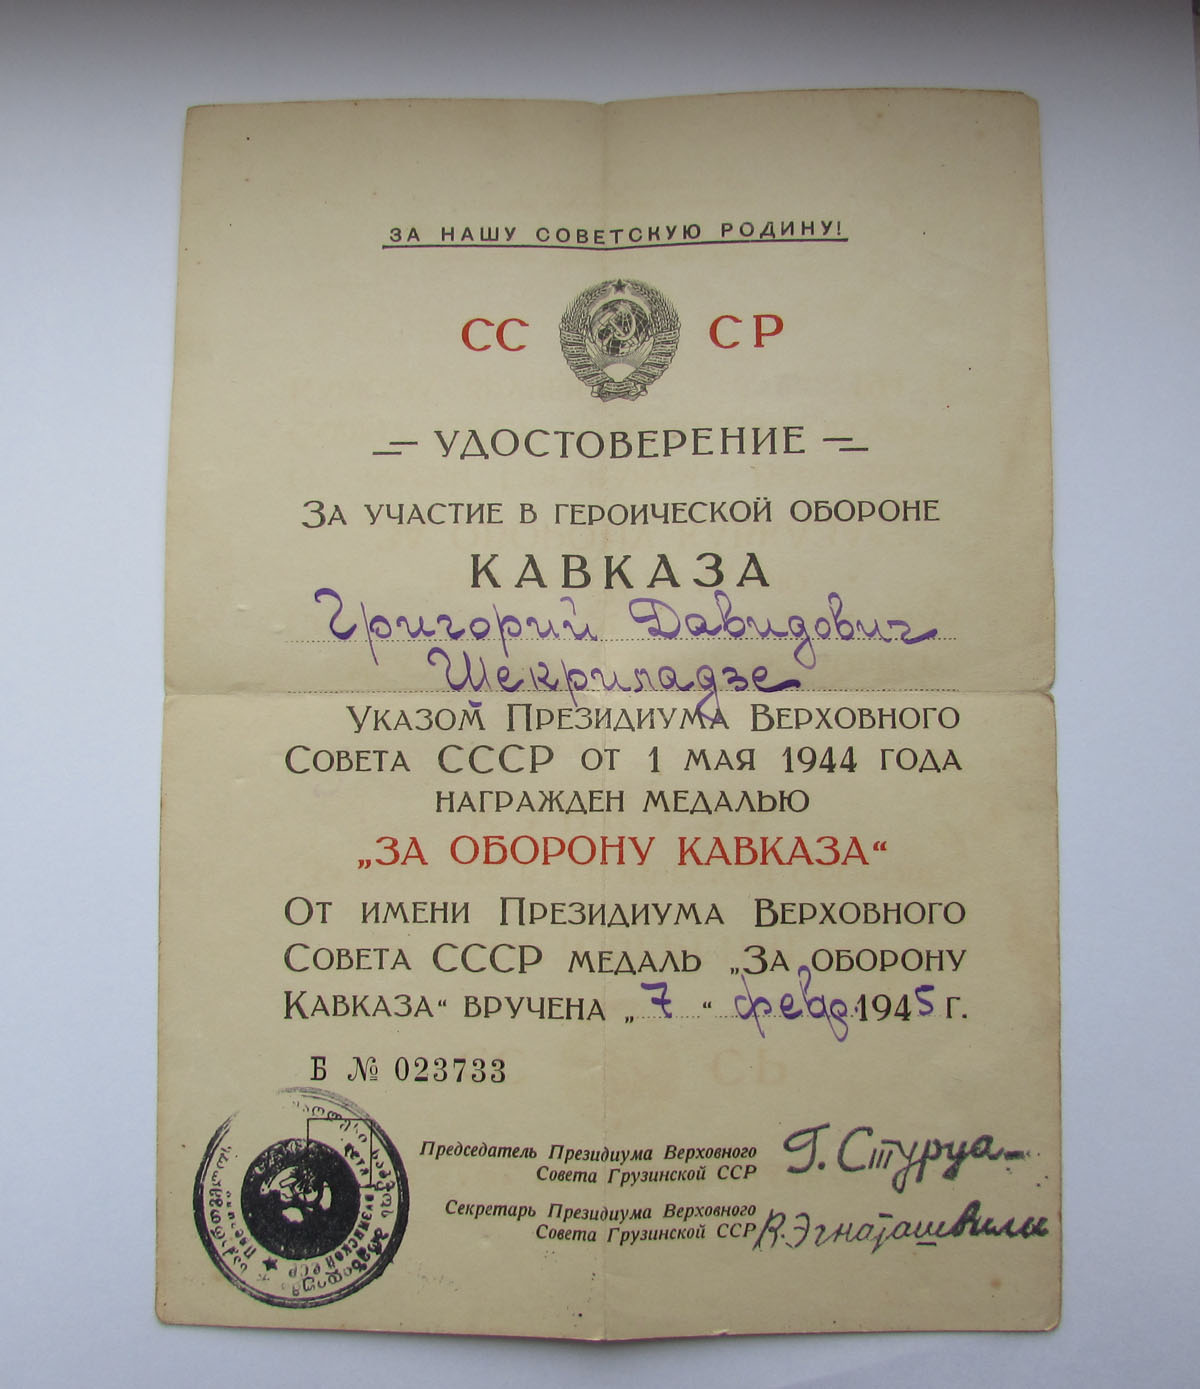 ЗА НАШУ СОВЕТСКУЮ РОДИНУ!
СС СР
УДОСТОВЕРЕНИЕ
ЗА УЧАСТИЕ В ГЕРОИЧЕСКОЙ ОБОРОНЕ
КАВКАЗА
Григорий Давидович
Шекриладзе
УКАЗОМ ПРЕЗИДИУМА ВЕРХОВНОГО
СОВЕТА СССР ОТ 1 МАЯ 1944 ГОДА
НАГРАЖДЕН МЕДАЛЬЮ
„ЗА ОБОРОНУ КАВКАЗА“
ОТ ИМЕНИ ПРЕЗИДИУМА ВЕРХОВНОГО
СОВЕТА СССР МЕДАЛЬ „ЗА ОБОРОНУ
КАВКАЗА“ ВРУЧЕНА „7“ февр. 1945 Г.
Б № 023733
Председатель Президиума Верховного
Совета Грузинской ССР
Г. Стуруа
Секретарь Президиума Верховного
Совета Грузинской ССР
В. Эгнаташвили